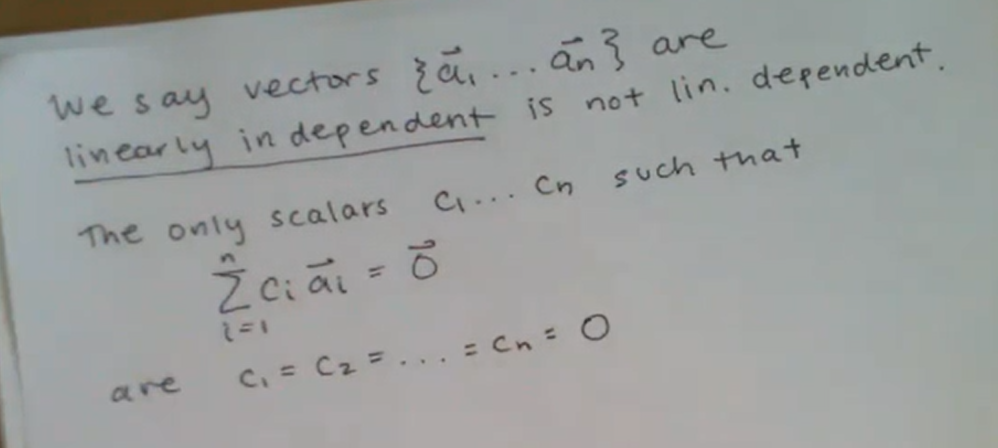 We say vectors {a⃗₁ ... a⃗n} are
linearly independent is not lin. dependent.
The only scalars c₁ ... cn such that
n
∑ cᵢ a⃗ᵢ = 0⃗
i=1
are c₁ = c₂ = ... = cn = 0